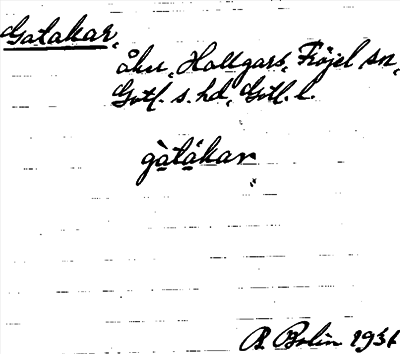 Gatakar,
åker, Hallgars, Fröjel sn,
Gotl. s. hd, Gotl. l.
gàtákar
R. Bolin 1931